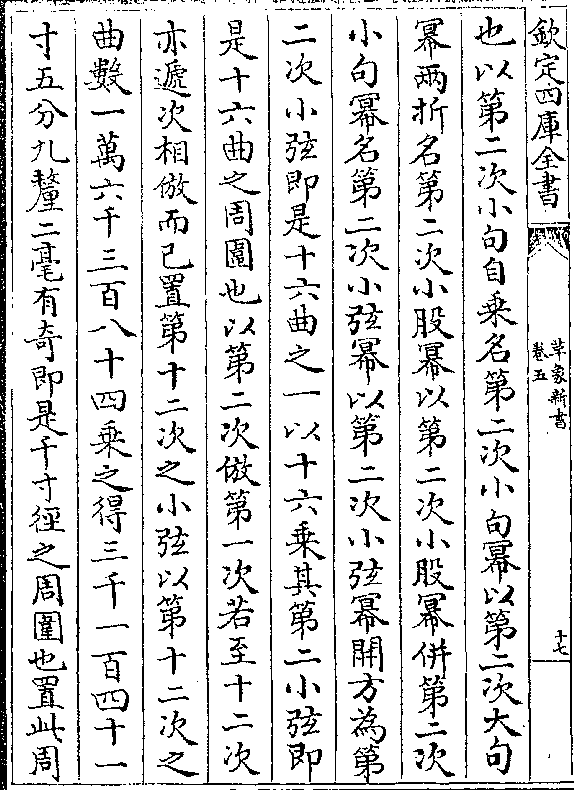 欽定四庫全書
革象新書
卷五
十七
也以第二次小句自乗名第二次小句冪以第二次大句
冪兩折名第二次小股冪以第二次小股冪併第二次
小句冪名第二次小弦冪以第二次小弦冪開方為第
二次小弦即是十六曲之一以十六乗其第二小弦即
是十六曲之周圍也以第二次倣第一次若至十二次
亦遞次相倣而已置第十二次之小弦以第十二次之
曲數一萬六千三百八十四乗之得三千一百四十一
寸五分九釐二毫有奇即是千寸徑之周圍也置此周